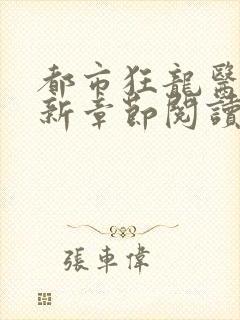 都市狂龍醫
新章節閱讀
張車偉